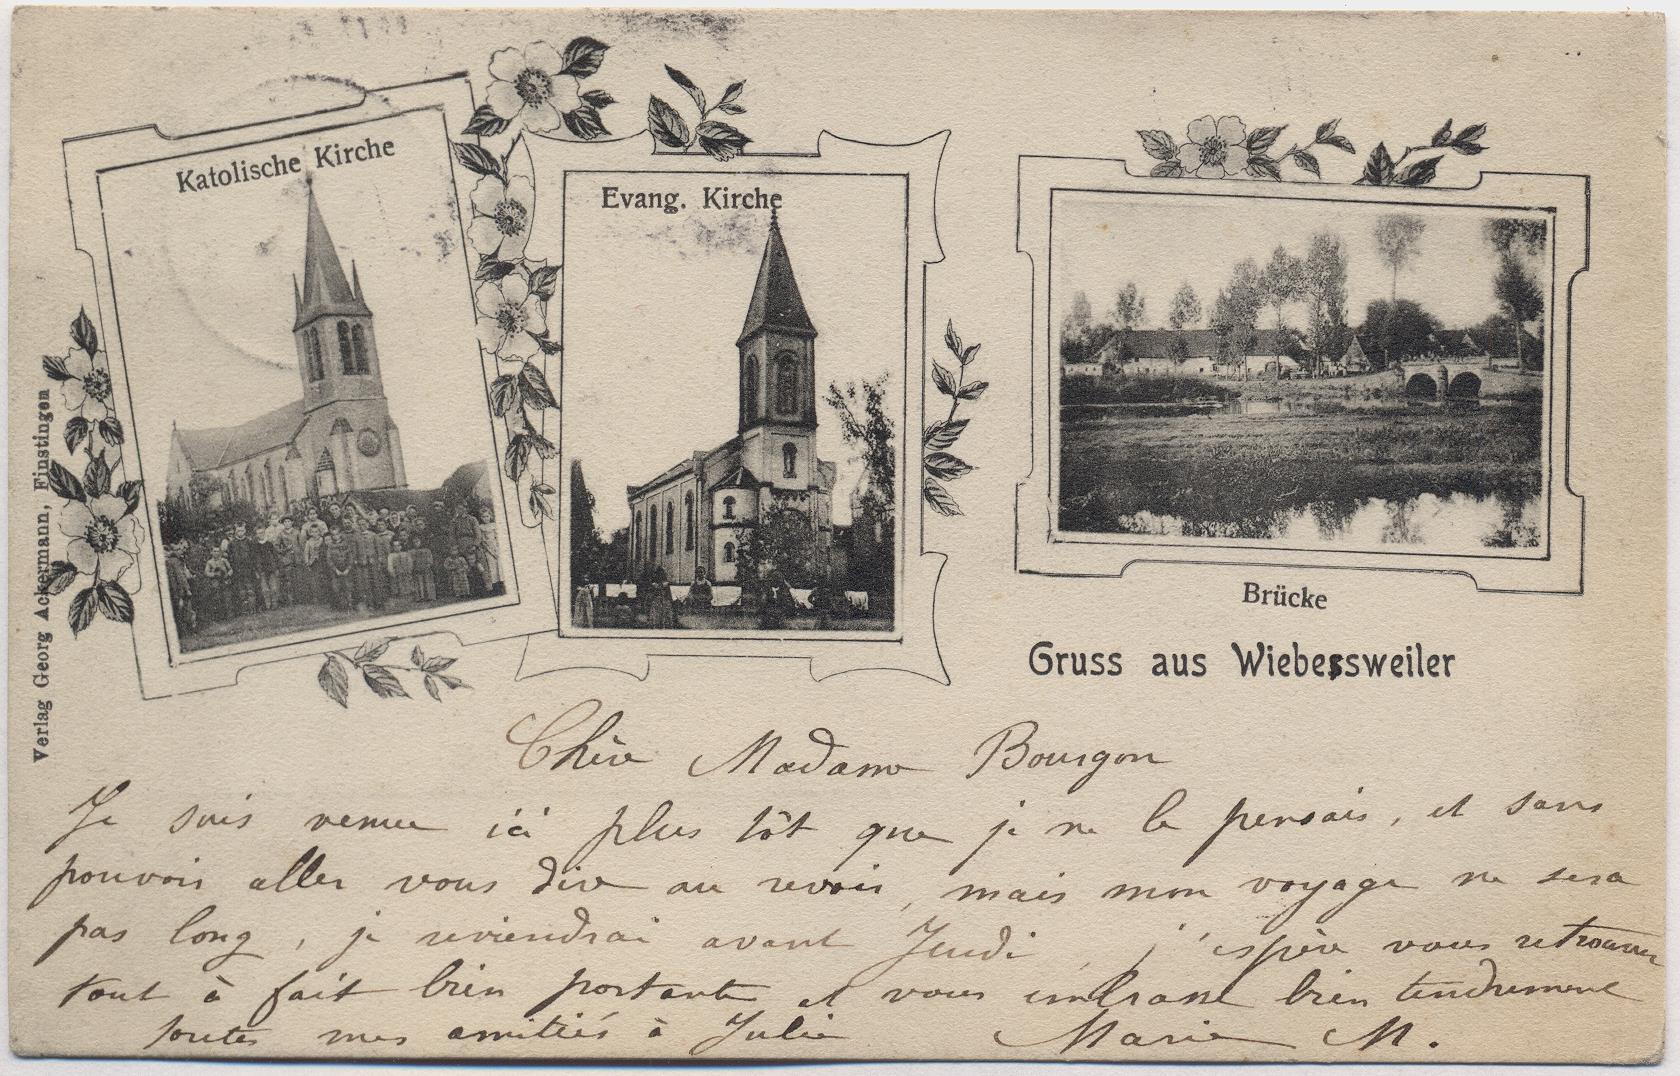 Katolische Kirche
Evang. Kirche
Brücke
Gruss aus Wiebersweiler
Verlag Georg Ackermann, Finstingen
Chère Madame Bourgon
Je suis venue ici plus tôt que je ne le pensais, et sans
pouvoir aller vous dire au revoir, mais mon voyage ne sera
pas long, je reviendrai avant Jeudi, j'espère vous retrouver
tout à fait bien portante et vous embrasse bien tendrement
toutes mes amitiés à Julie Marie M.